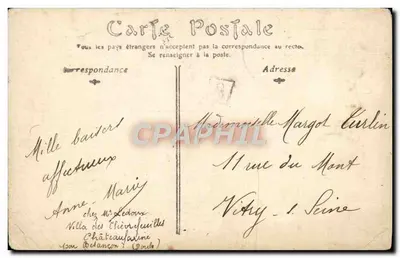 Carte Postale
Tous les pays étrangers n'acceptent pas la correspondance au recto.
Se renseigner à la poste.
respondance
Adresse
Mille baisers
affectueux
Anne-Marie
chez Mr Ledoux
Villa des Chèvrefeuilles
Châteaufarine
par Besançon (Doubs)
Mademoiselle Margot
11 rue du Mont
Vitry s. Seine
CPAPHIL